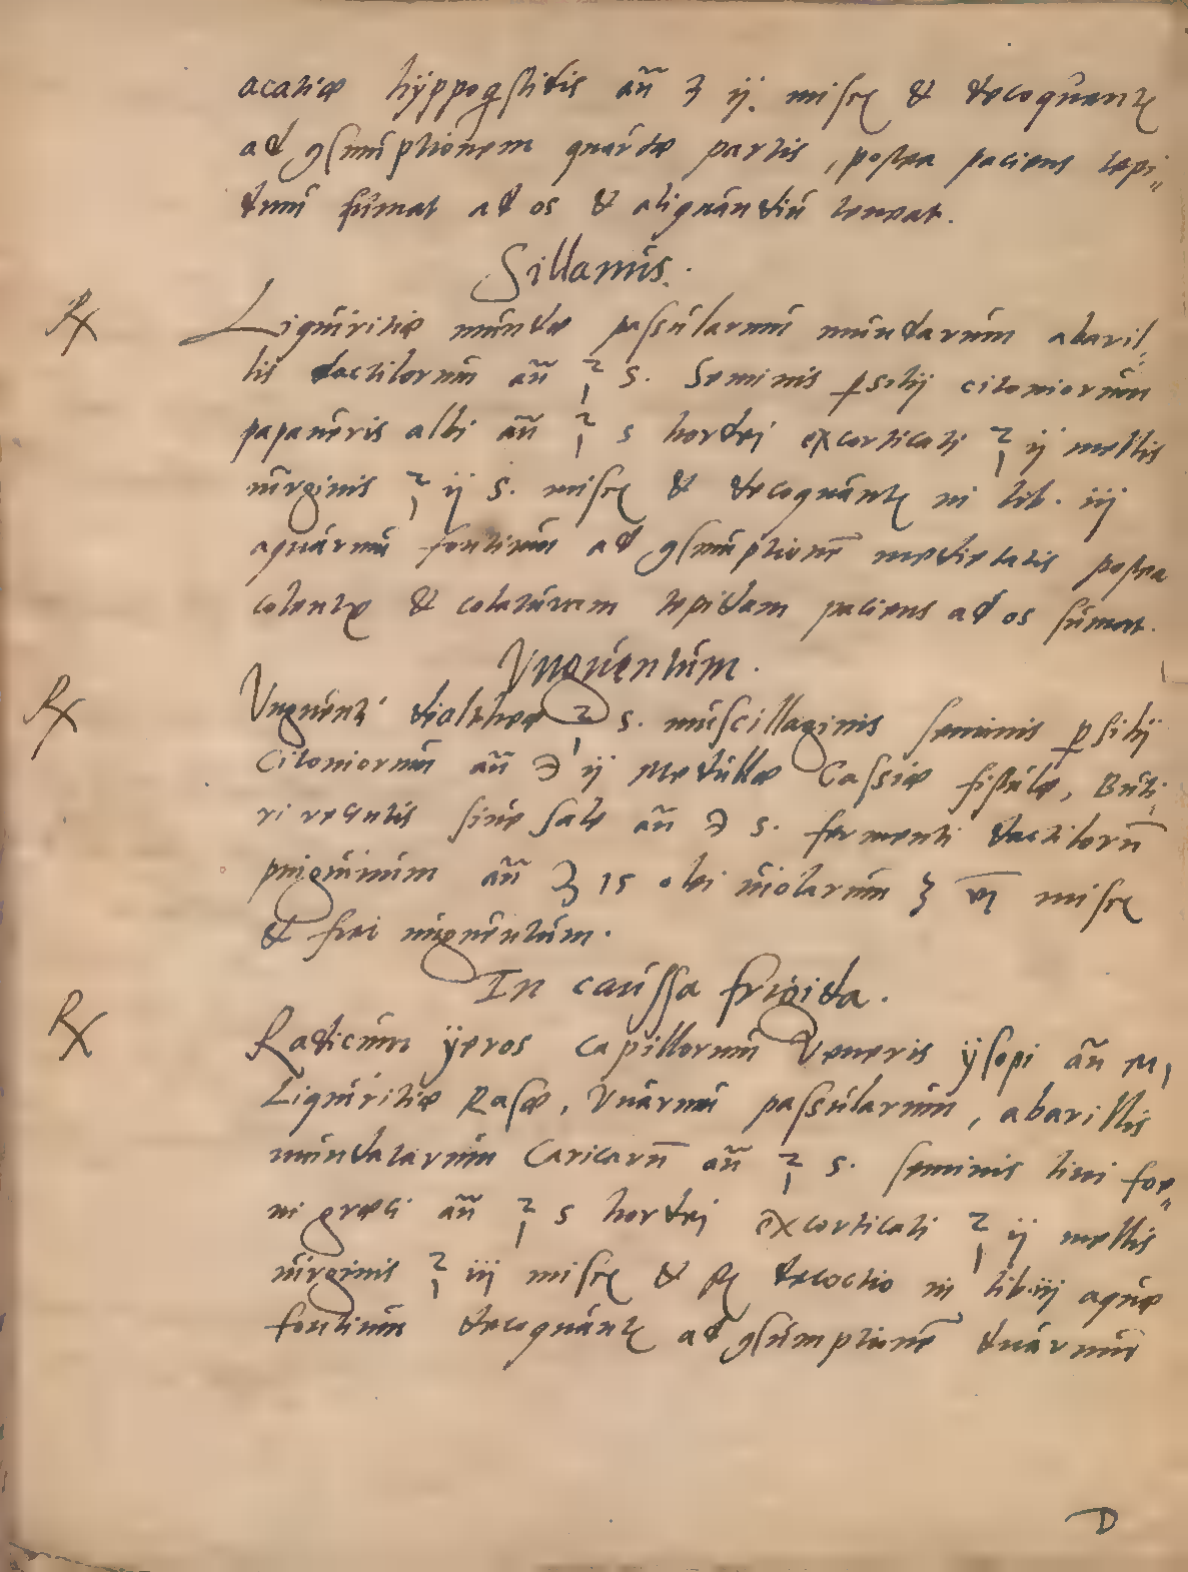 acatiæ hÿppoqstidis añ ʒ ij. miscę & decoquantę
ad ꝯsumptionem quartæ partis, postea paciens tepi„
dum sumat ad os & aliquandiu teneat.
Sillamus.
℞ Liquiritiæ mundæ passularum mundarum abaril„
lis dactilorum añ ℥ s. Seminis psilij citoniorum
papaueris albi añ ℥ s hordej excorticati ℥ ij mellis
uirginis ℥ ij s. miscę & decoquantę in lib. iij
aquarum fontium ad ꝯsumptionē medietatis postea
colentę & colaturam tepidam paciens ad os sumat.
Vnguentum.
℞ Vnguenti dialtheæ ℥ s. muscillaginis seminis psilij
Citoniorum añ ℈ ij Medullæ Cassiæ fistulæ, Buti„
ri recentis sine sale añ ℈ s. fermenti dactilorū
pinguium añ ʒ 15 olei uiolarum ʒ vi miscę
& fiat unguentum.
In caussa frigida.
℞ Radicum ÿeros capillorum Veneris ÿsopi añ M,
Liquiritiæ Rasæ, Vuarum passularum, abarillis
mundatarum Caricarū añ ℥ s. seminis lini foe„
ni græci añ ℥ s hordej excorticati ℥ ij mellis
uirginis ℥ iij miscę & fię decoctio in lib. iij aquæ
fontium decoquantę ad ꝯsumptionē duarum
D